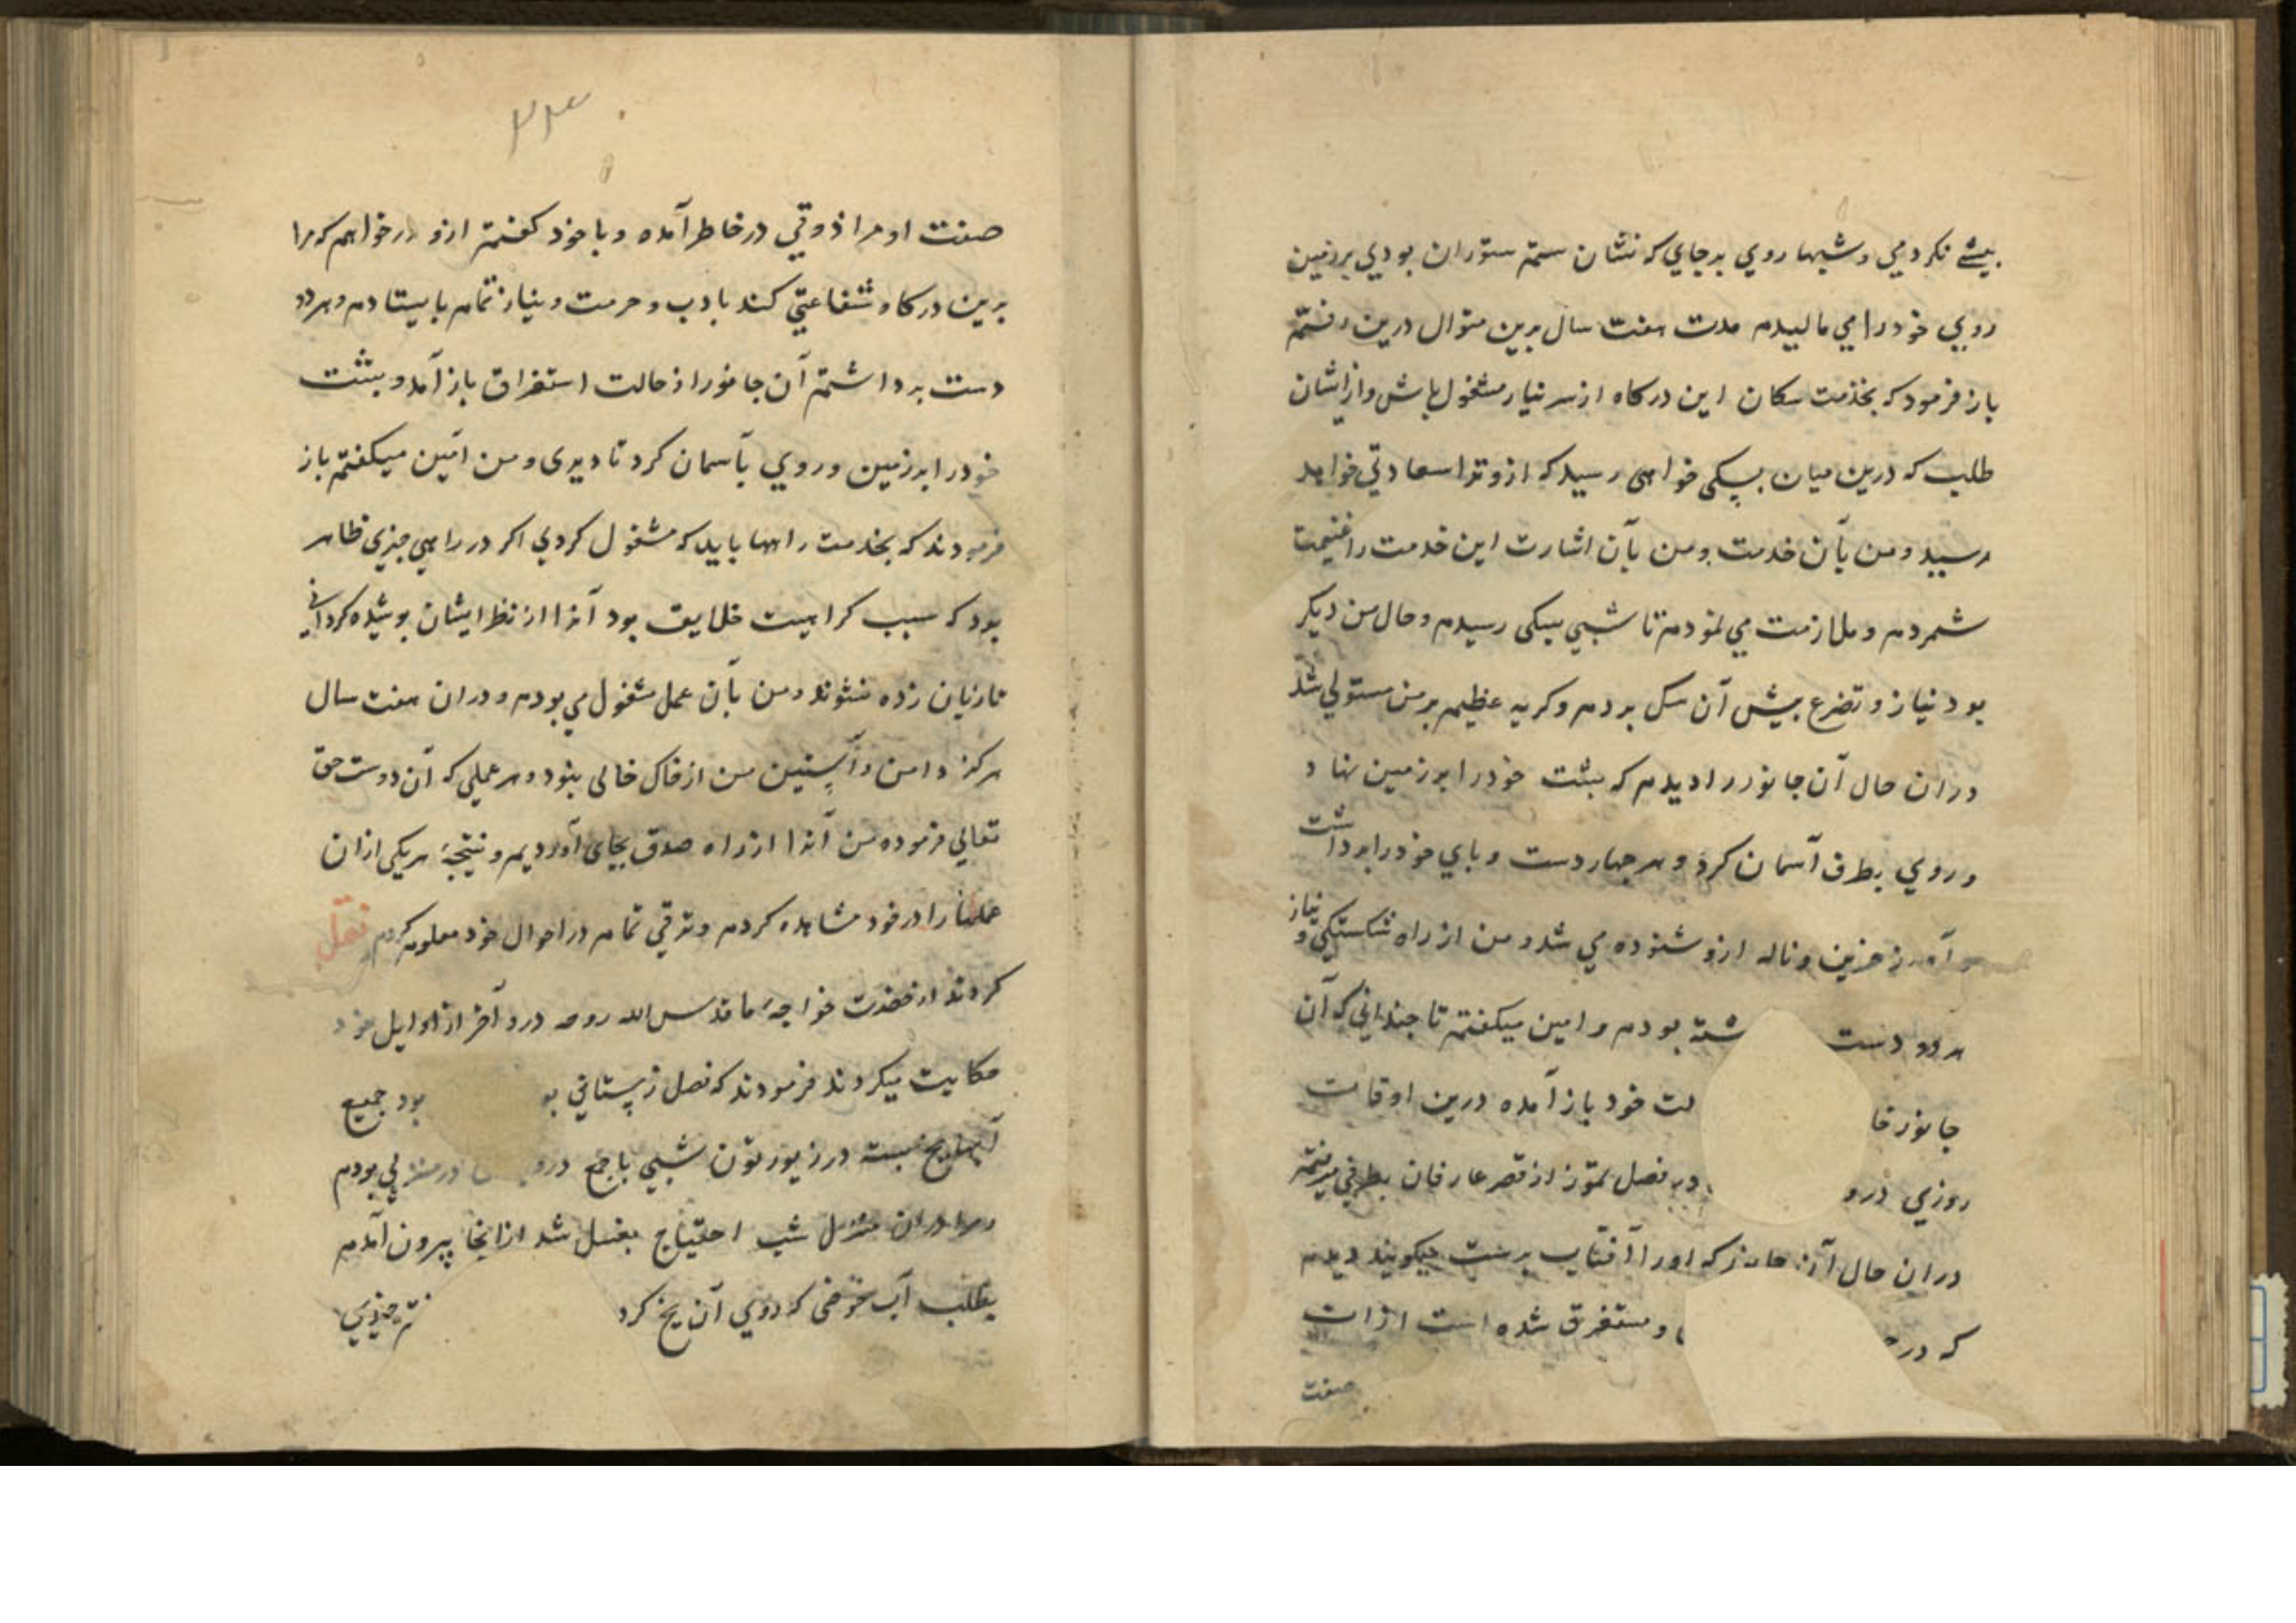 بیشے نکردمی و شبها روي بر جاي که نشان ستم ستوران بودي بر زمین
روي خود را مي مالیدم مدت هفت سال برین منوال درین رفتم
باز فرمود که بخدمت سکان این درکاه از سر نیاز مشغول باش و از ایشان
طلب که درین میان بسکی خواهی رسید که ازو ترا سعادتي خواهد
رسید و من بآن خدمت و من بآن اشارت این خدمت را غنیمت
شمردم و ملازمت مي نمودم تا شبي بسکی رسیدم و حال من دیکر
بود نیاز و تضرع پیش آن سک بردم و کریه عظیم بر من مستولي شد
دران حال آن جانور را دیدم که پشت خود را بر زمین نهاد
و روي بطرف آسمان کرد و هر چهار دست و پاي خود را برداشت
آواز حزین و ناله ازو شنوده مي شد و من از راه شکستکي و نیاز
هر دو دست شته بودم و امین میکفتم تا چنداني که آن
جانور خا لت خود باز آمده درین اوقات
روزي درو در فصل تموز از قصر عارفان بطرفي میرفتم
دران حال آن جانور که او را آفتاب پرست میکویند دیدم
که در و مستغرق شده است از ان
صفت
۲۳
صفت او مرا ذوقي در خاطر آمده و با خود کفتم ازو درخواهم که مرا
برین درکاه شفاعتي کند بادب و حرمت و نیاز تمام بایستادم و هر دو
دست برداشتم آن جانور از حالت استغراق باز آمد و پشت
خود را بر زمین و روي بآسمان کرد تا دیری و من امین میکفتم باز
فرمودند که بخدمت راهها باید که مشغول کردي اکر در راهي چیزي ظاهر
بود که سبب کراهیت خلایق بود آنرا از نظر ایشان پوشیده کرداني
تا زیان زده نشوند و من بآن عمل مشغول مي بودم و دران هفت سال
هرکز دامن و آستین من از خاک خالی نبود و هر عملي که آن دوست حق
تعالي فرموده من آنرا از راه صدق بجای آوردیم و نتیجهٔ هر یکي ازان
عملها را در خود مشاهده کردم و ترقي تمام در احوال خود معلوم کردم نقل
کردند از حضرت خواجهٔ ما قدس الله روحه در و آخر از اوایل خود
حکایت میکردند فرمودند که فصل زمستاني بو بود جمیع
آبها یخ بسته در زیورتون شبي با جمع در منزلي بودم
و مرا دران منزل شب احتیاج بغسل شد ازانجا بیرون آمدم
بطلب آب حوضی که روي آن یخ کرد